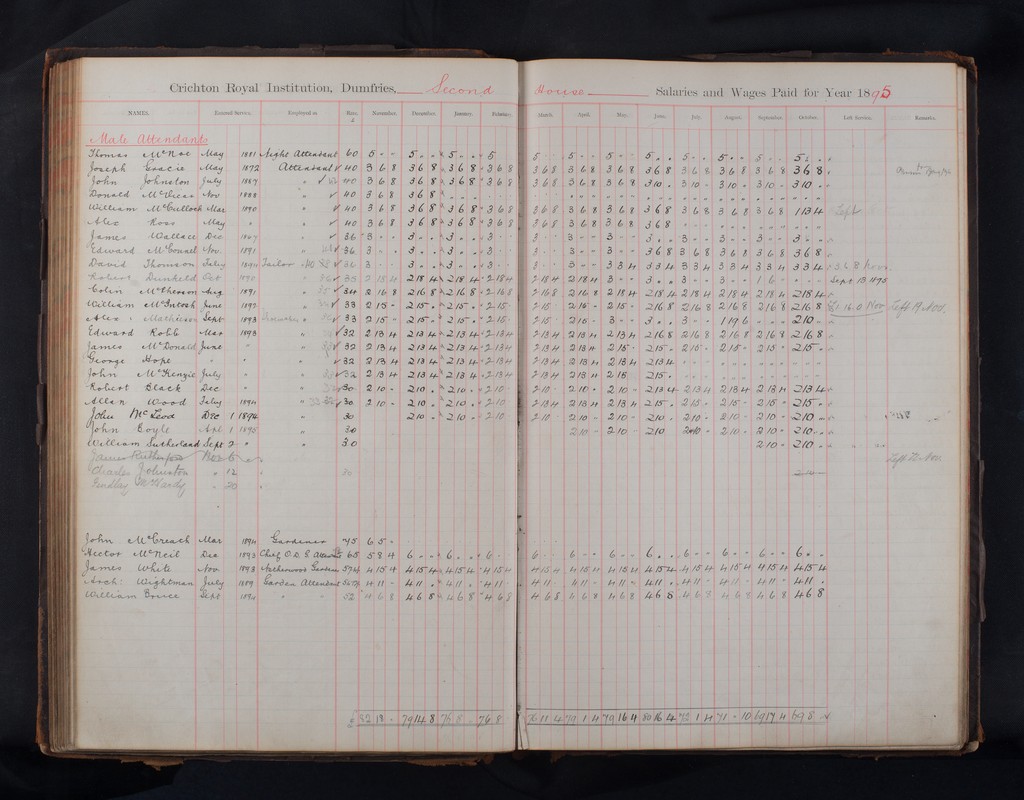 Crichton Royal Institution, Dumfries, Second House Salaries and Wages Paid for Year 1895
NAMES. Entered Service. Employed as Rate. £ November. December. January. February. March. April. May. June. July. August. September. October. Left Service. Remarks.
Male Attendants
Thomas May 1881 Night Attendant 60 5 - - 5 . . 5 . . 5 5 5 - - 5 - - 5 . . 5 - - 5 . . 5 - - 5 . .
Joseph Gracie May 1872 Attendant 40 3 6 8 3 6 8 3 6 8 3 6 8 3 6 8 3 6 8 3 6 8 3 6 8 3 6 8 3 6 8 3 6 8 3 6 8
John Johnston July 1887 " 40 3 6 8 3 6 8 3 6 8 3 6 8 3 6 8 3 6 8 3 6 8 3 10 . 3 10 - 3 10 . 3 10 - 3 10 .
Donald McVicar Nov 1888 " 40 3 6 8 3 6 8
William McCulloch Mar 1890 " 40 3 6 8 3 6 8 3 6 8 3 6 8 3 6 8 3 6 8 3 6 8 3 6 8 3 6 8 3 6 8 3 6 8 1 13 4 Left
Alex Ross May " " 40 3 6 8 3 6 8 3 6 8 3 6 8 3 6 8 3 6 8 3 6 8 3 6 8
James Wallace Dec 1887 " 36 3 - - 3 . . 3 . . 3 3 3 - - 3 - 3 . . 3 - - 3 . . 3 - - 3 . .
Edward McConnel Nov. 1891 " 36 3 - - 3 . . 3 . . 3 3 3 - - 3 - 3 6 8 3 6 8 3 6 8 3 6 8 3 6 8
David Thomson July 1894 Tailor 36 3 - - 3 . . 3 . . 3 3 3 - - 3 3 4 3 3 4 3 3 4 3 3 4 3 3 4 3 3 4 3 6 8 Nov.
Robert Dunkeld Oct 2 18 4 2 18 4 2 18 4 2 18 4 2 18 4 2 18 4 3 - - 3 . . 3 - - 3 . . 1 6 - Sept 13 1895
Colin McPherson Aug 1891 " 34 2 16 8 2 16 8 2 16 8 2 16 8 2 16 8 2 16 8 2 18 4 2 18 4 2 18 4 2 18 4 2 18 4 2 18 4
William McIntosh June 1892 " 33 2 15 - 2 15 . 2 15 . 2 15 2 15 2 15 - 2 15 - 2 16 8 2 16 8 2 16 8 2 16 8 2 16 8 Left 19 Nov.
Alex. Mathieson Sept 1893 33 2 15 - 2 15 . 2 15 . 2 15 2 15 2 15 - 3 - 3 . . 3 - - 1 19 6 2 10 .
Edward Robb Mar 1893 " 32 2 13 4 2 13 4 2 13 4 2 13 4 2 13 4 2 13 4 2 13 4 2 16 8 2 16 8 2 16 8 2 16 8 2 16 8
James McDonald June " " 32 2 13 4 2 13 4 2 13 4 2 13 4 2 13 4 2 13 4 2 15 - 2 15 . 2 15 - 2 15 . 2 15 - 2 15 .
George Hope " " " 32 2 13 4 2 13 4 2 13 4 2 13 4 2 13 4 2 13 4 2 13 4 2 13 4
John McKenzie July " " 32 2 13 4 2 13 4 2 13 4 2 13 4 2 13 4 2 13 4 2 15 2 15 .
Robert Black Dec " " 30 2 10 - 2 10 . 2 10 . 2 10 2 10 2 10 - 2 10 - 2 13 4 2 13 4 2 13 4 2 13 4 2 13 4
Allan Wood July 1894 " 30 2 10 - 2 10 . 2 10 . 2 10 2 10 2 10 - 2 10 - 2 15 . 2 15 - 2 15 . 2 15 - 2 15 .
John McLeod Dec 1 1894 " 30 2 10 . 2 10 . 2 10 2 10 2 10 - 2 10 - 2 10 . 2 10 - 2 10 . 2 10 - 2 10 .
John Boyle Apl 1 1895 " 30 2 10 - 2 10 - 2 10 2 10 - 2 10 . 2 10 - 2 10 .
William Sutherland Sept 2 " " 30 2 10 - 2 10 .
James Rutherford Left 20 Nov
Charles Johnston " 12 30 2 10
Findlay McHardy " 20
John McCreach Mar 1894 Gardener 75 6 5 -
Hector McNeil Dec 1893 65 5 8 4 6 . . 6 . . 6 6 6 - - 6 - - 6 . . 6 - - 6 . . 6 - - 6 . .
James White Nov. 1893 4 15 4 4 15 4 4 15 4 4 15 4 4 15 4 4 15 4 4 15 4 4 15 4 4 15 4 4 15 4 4 15 4 4 15 4
Arch: Wightman July 1889 Garden Attendant 4 11 - 4 11 . 4 11 . 4 11 4 11 4 11 - 4 11 - 4 11 . 4 11 - 4 11 . 4 11 - 4 11 .
William Bruce Sept 1894 " " 52 4 6 8 4 6 8 4 6 8 4 6 8 4 6 8 4 6 8 4 6 8 4 6 8 4 6 8 4 6 8 4 6 8 4 6 8
£ 82 18 - 79 14 8 76 8 . 76 8 76 11 4 79 1 4 79 16 4 80 16 4 72 1 4 71 - 10 69 17 4 69 8